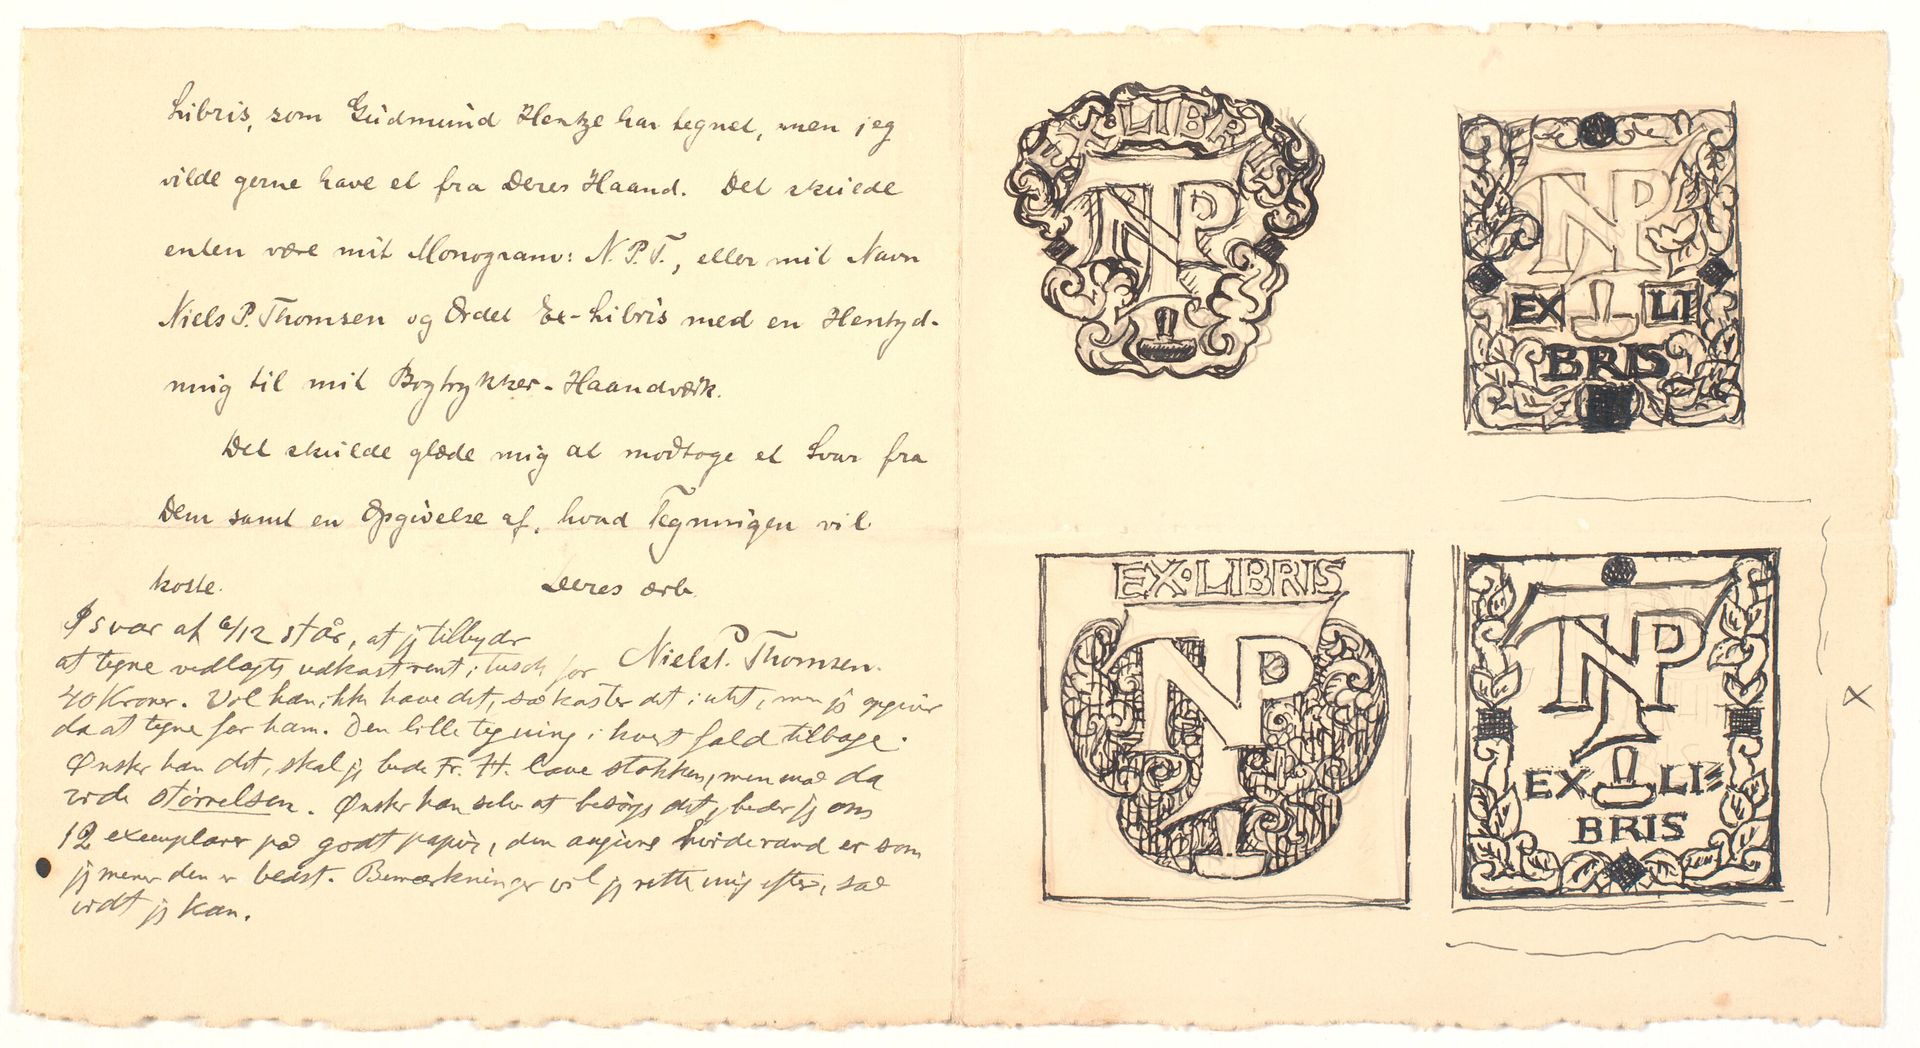 Libris, som Gudmund Hentze har tegnet, men jeg
vilde gerne have et fra Deres Haand. Det skulde
enten være mit Monogram: N.P.T., eller mit Navn
Niels P. Thomsen og Ordet Ex-Libris med en Hentyd-
ning til mit Bogtrykker-Haandværk.
Det skulde glæde mig at modtage et Svar fra
Dem samt en Opgivelse af, hvad Tegningen vil
koste.
Deres ærb.
Niels P. Thomsen.
I svar af 6/12 står, at jeg tilbyder
at tegne vedlagte udkast rent i tusch for
40 Kroner. Vil han ikke have det, så koster det intet, men jeg opgiver
da at tegne for ham. Den lille tegning i hvert fald tilbage.
Ønsker han det, skal jeg bede Fr. H. lave stokken, men må da
vide størrelsen. Ønsker han selv at besørge det, beder jeg om
12 exemplarer på godt papir, den angivne hvide rand er som
jeg mener den er bedst. Bemærkninger vil jeg rette mig efter, så
vidt jeg kan.
EX·LIBRIS
TNP
TNP
EX LI
BRIS
EX·LIBRIS
TNP
TNP
EX LI
BRIS
X